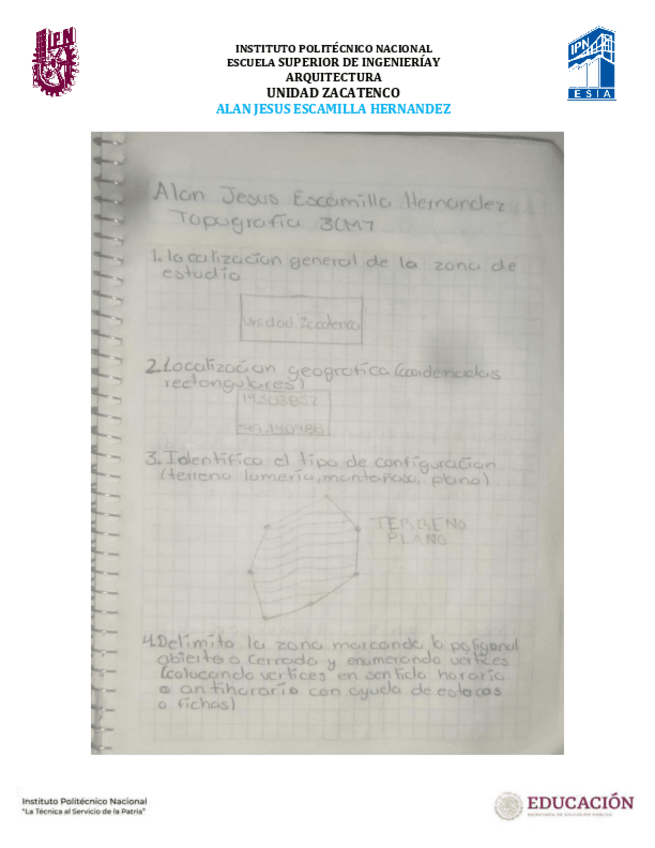 IPN
INSTITUTO POLITÉCNICO NACIONAL
ESCUELA SUPERIOR DE INGENIERÍAY
ARQUITECTURA
UNIDAD ZACATENCO
ALAN JESUS ESCAMILLA HERNANDEZ
IPN
ESIA
Alan Jesus Escamilla Hernandez
Topografía 3CM7
1. localización general de la zona de
estudio
Unidad Zacatenco
2. Localización geografica (coordenadas
rectangulares)
19.503852
3. Identifico el tipo de configuracion
(terreno lomerio, montañoso, plano)
TERRENO
PLANO
4. Delimito la zona marcando la poligonal
abierta o cerrada y enumerando vertices
(colocando vertices en sentido horario
o antihorario con ayuda de estacas
o fichas)
Instituto Politécnico Nacional
"La Técnica al Servicio de la Patria"
EDUCACIÓN
SECRETARÍA DE EDUCACIÓN PÚBLICA